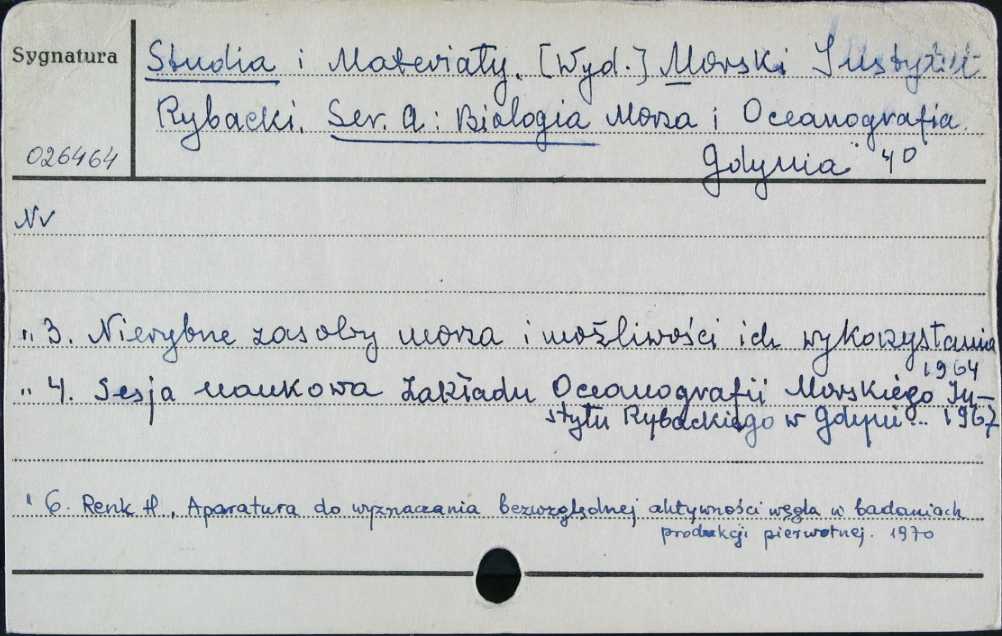 Sygnatura
Studia i Materiały. [Wyd.] Morski Instytut
Rybacki. Ser. A: Biologia Morza i Oceanografia.
026464
Gdynia 4°
Nr
" 3. Nierybne zasoby morza i możliwości ich wykorzystania
1964
" 4. Sesja naukowa Zakładu Oceanografii Morskiego In-
stytu Rybackiego w Gdyni... 1967
" 6. Renk H., Aparatura do wyznaczania bezwzględnej aktywności węgla w badaniach
produkcji pierwotnej. 1970